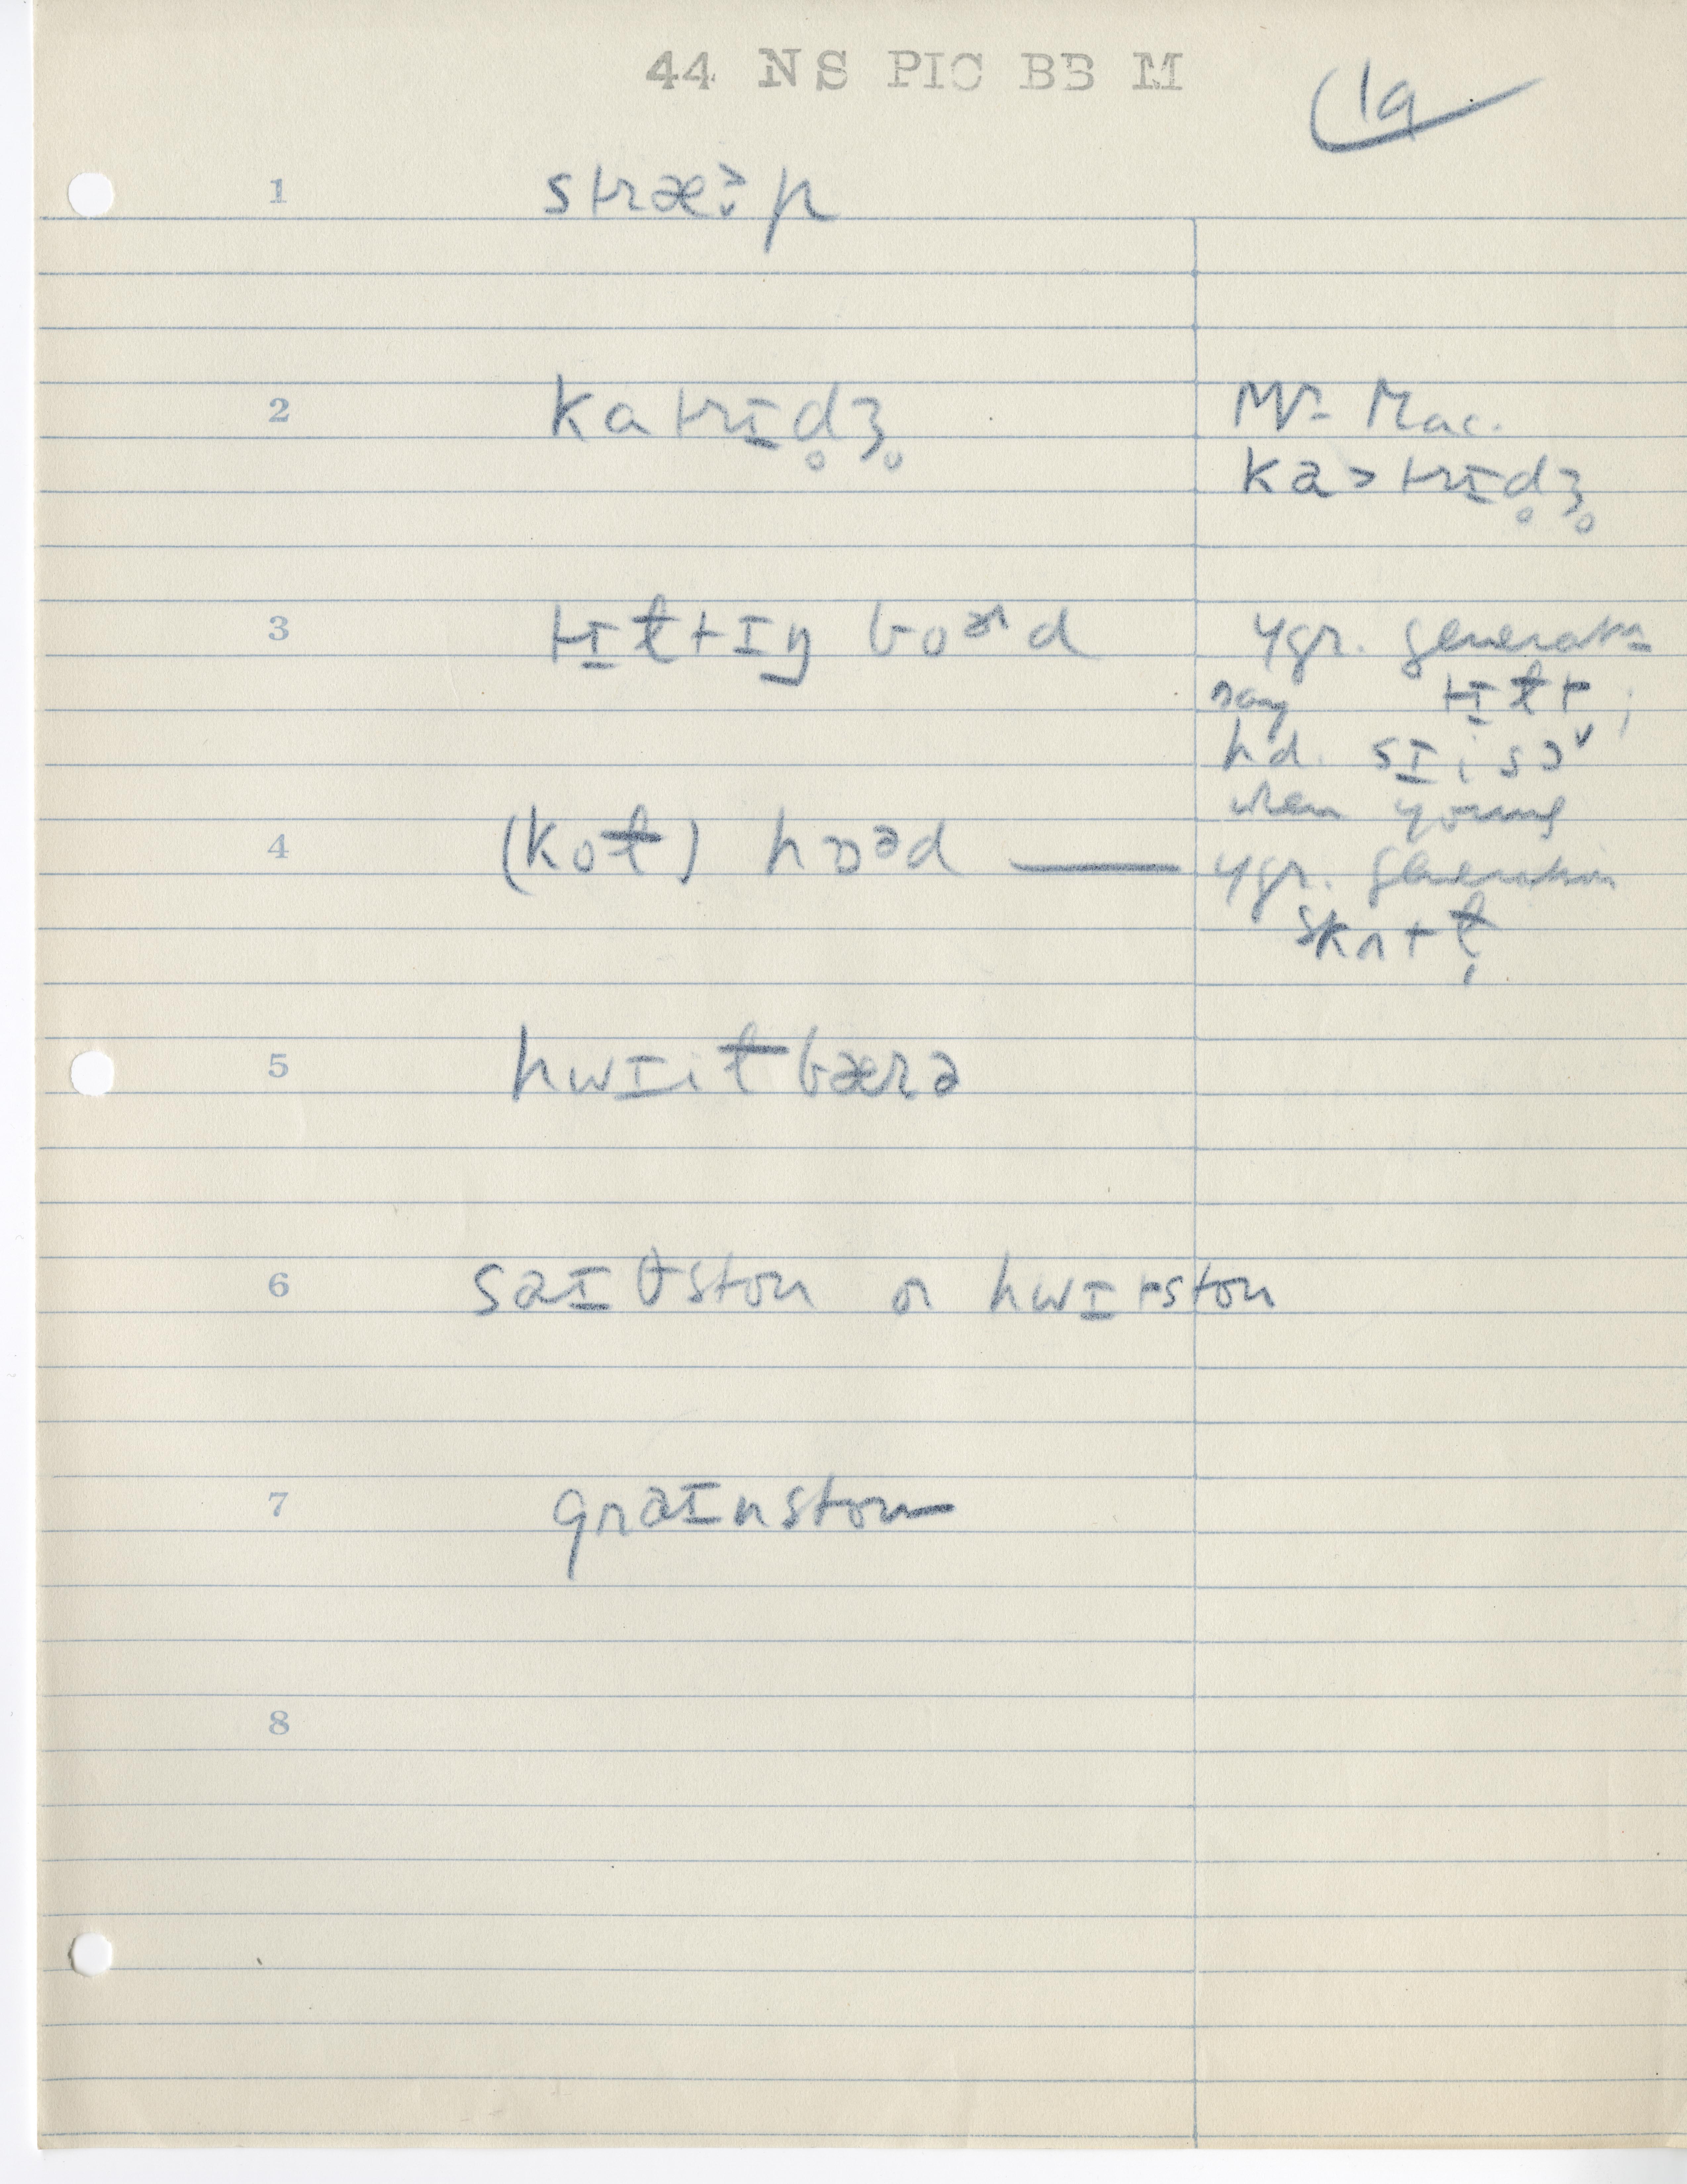 44 NS PIC BB M
19
1 stræ˃p
2 katrɪd̥ʒ̊
Mr. Mac.
ka>trɪd̥ʒ̊
3 tɪɫtɪŋ boɚd
ygr. generation
say tɪɫt;
hd. sɪisɔ˅
when young
4 (koɫ) hɒəd —
ygr. generation
skʌtɫ̩
5 hwɪiɫbærə
6 saɪðston or hwɪtston
7 graɪnston
8